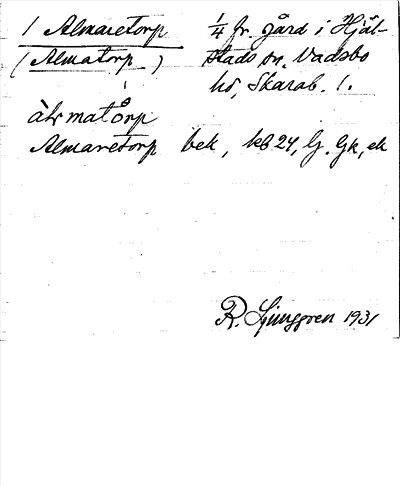 1 Almaretorp
(Almatorp)
¼ fr. gård i Hjäl-
stads sn, Vadsbo
hd, Skarab. l.
Almaretorp bek, kb 24, G. Gk, ek
R. Ljunggren 1931